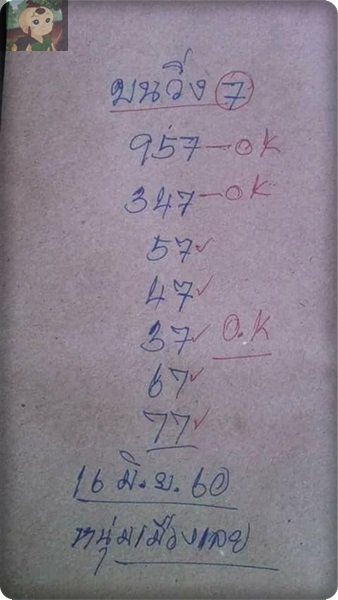 บนวิ่ง 7
957-OK
347-OK
57✓
47✓
37✓ O.K
67✓
77✓
16 มิ.ย. 60
หนุ่มเมืองเลย